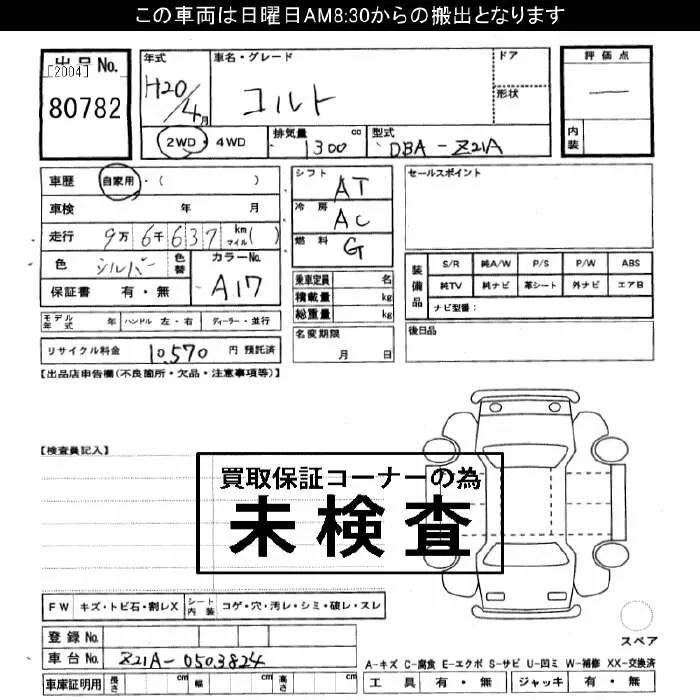 この車両は日曜日AM8:30からの搬出となります
出品No.
[2004]
80782
年式 H20/4月
車名・グレード コルト
ドア
形状
評価点 —
内装
2WD・4WD
排気量 1300 cc
型式 DBA-Z21A
車歴 自家用・( )
車検 年 月
走行 9万6千637 km マイル( )
色 シルバー 色替
カラーNo. A17
保証書 有・無
モデル年式 年 ハンドル 左・右 ディーラー・並行
リサイクル料金 10,570 円 預託済
シフト AT
冷房 AC
燃料 G
乗車定員 名
積載量 kg
総重量 kg
名変期限
月 日
セールスポイント
装備品
S/R 純A/W P/S P/W ABS
純TV 純ナビ 革シート 外ナビ エアB
ナビ型番:
後日品
【出品店申告欄(不良箇所・欠品・注意事項等)】
【検査員記入】
買取保証コーナーの為
未検査
FW キズ・トビ石・割レX シート内装 コゲ・穴・汚レ・シミ・破レ・スレ
登録No.
車台No. Z21A-0503824
車庫証明用 長さ cm 幅 cm 高さ cm
スペア
A-キズ C-腐食 E-エクボ S-サビ U-凹ミ W-補修 XX-交換済
工具 有・無 ジャッキ 有・無